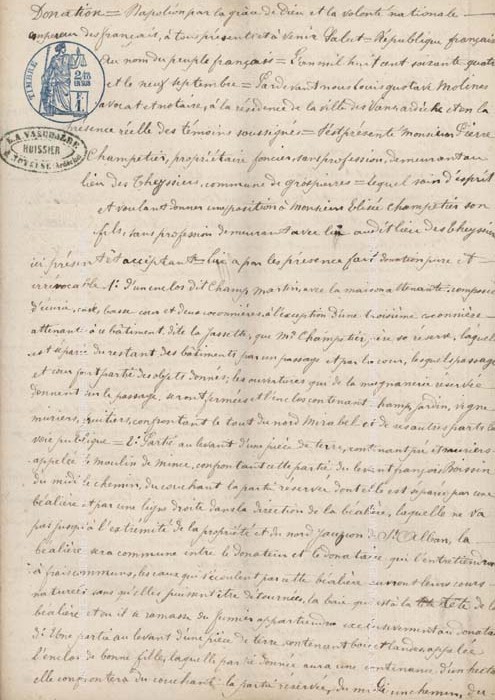 Donation = Napoléon par la grâce de Dieu et la volonté nationale
empereur des français, à tous présents et à venir Salut = République française
au nom du peuple français = L'an mil huit cent soixante quatre
et le neuf septembre = Pardevant nous Louis Gustave Molines
avocat et notaire, à la résidence de la ville des Vans ardèche et en la
présence réelle des témoins soussignés = s'est présenté Monsieur Pierre
Champetier, propriétaire foncier, sans profession, demeurant au
lieu des Theyssier, commune de grospierres = lequel sain d'esprit
et voulant donner une position à Monsieur Elisée Champetier son
fils, sans profession demeurant avec lui audit lieu des Theyssier
ici présent et acceptant = lui a par les présentes fait donation pure et
irrévocable 1° d'un enclos dit Champ Martin, avec la maison attenante, composée
d'écurie, basse cour et deux coconnières, à l'exception d'une troisième coconnière
attenant à ce bâtiment, dite la fassette, que Mr Champetier père se réserve, laquelle
est séparée du restant des bâtiments par un passage et par la cour, lesquels passage
et cour font partie des objets donnés; les ouvertures que de la magnanerie réservée
donnent sur le passage, seront fermées et l'enclos contenant champ, jardin, vigne
muriers, fruitiers, confrontant le tout du nord Mirabel et de ses autres parts la
voie publique = 2° Partie au levant d'une pièce de terre, contenant pré et muriers
appelée le moulin de , confrontant cette partie du levant françois Boissin
du midi le chemin, du couchant la partie réservée dont elle est séparée par une
béalière et par une ligne droite dans la direction de la béalière, laquelle ne va
pas jusqu'à l'extrémité de la propriété et du nord Jacquon de St Alban, la
béalière sera commune entre le donateur et le donataire qui l'entretiendront
à frais communs, les eaux qui s'écoulent par cette béalière suivront leur cours
naturel sans qu'elles puissent être détournées, la baie qui est à la tête de la
béalière et où il a ramassé du fumier appartiendra exclusivement au donataire
3° Une partie au levant d'une pièce de terre, contenant bois et landes, appelée
l'enclos de bonne fille, laquelle partie donnée aura une contenance d'un hectare
elle confrontera du couchant la partie réservée, du midi un chemin, du
TIMBRE
LA VACHALDE
HUISSIER
A JOYEUSE (Ardèche)